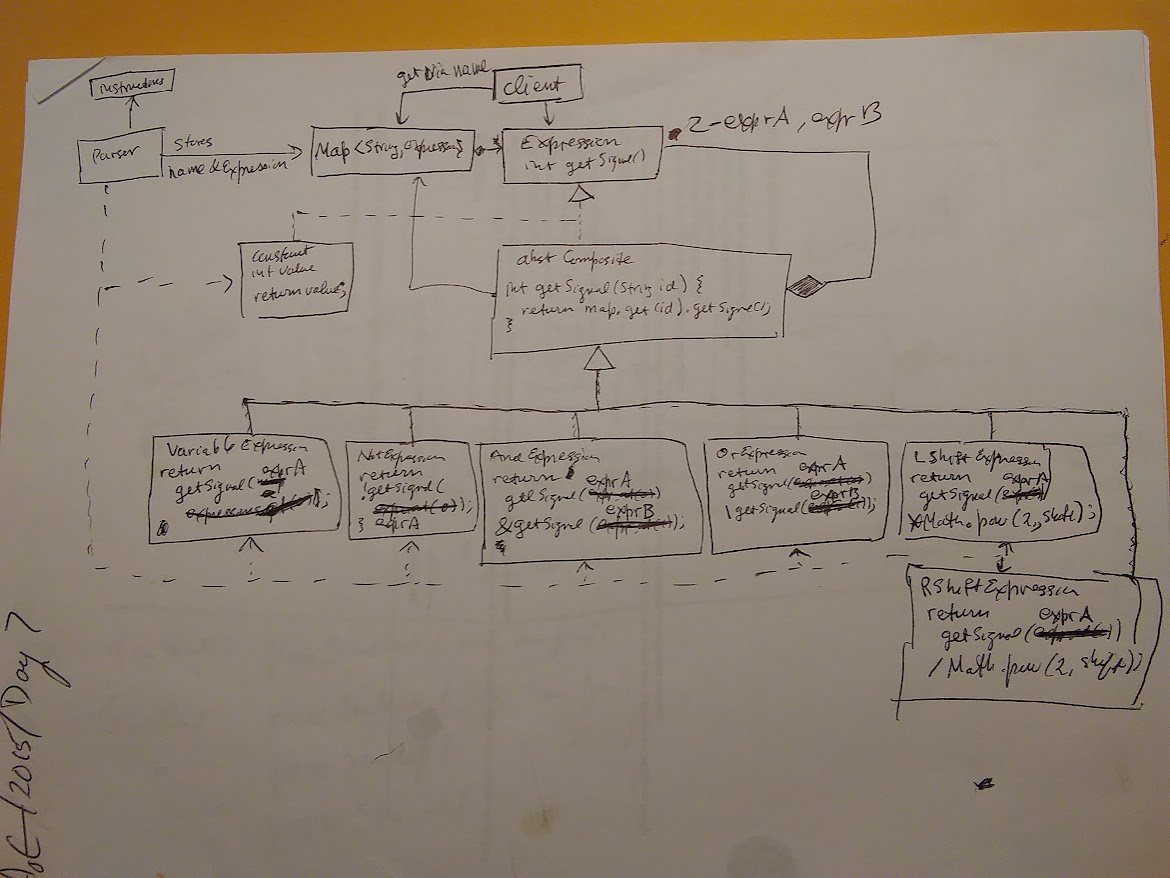 instructions
get via name
client
Parser
Stores
name & Expression
Map<String, Expression>
Expression
int getSignal()
2-exprA, exprB
Constant
int value
return value;
abst Composite
int getSignal(String id) {
return map.get(id).getSignal();
}
Variable Expression
return
exprA
getSignal(
);
NotExpression
return
getSignal(
exprat(0)); 
} exprA
And Expression
return
exprA
getSignal(
)
exprB
& getSignal(
);
Or Expression
return exprA
getSignal(
)
exprB
| getSignal(
);
LShift Expression
return exprA
getSignal(
)
*Math.pow(2, shift);
RShift Expression
return exprA
getSignal(
)
/Math.pow(2, shift);
AoC-(2015/Day 7